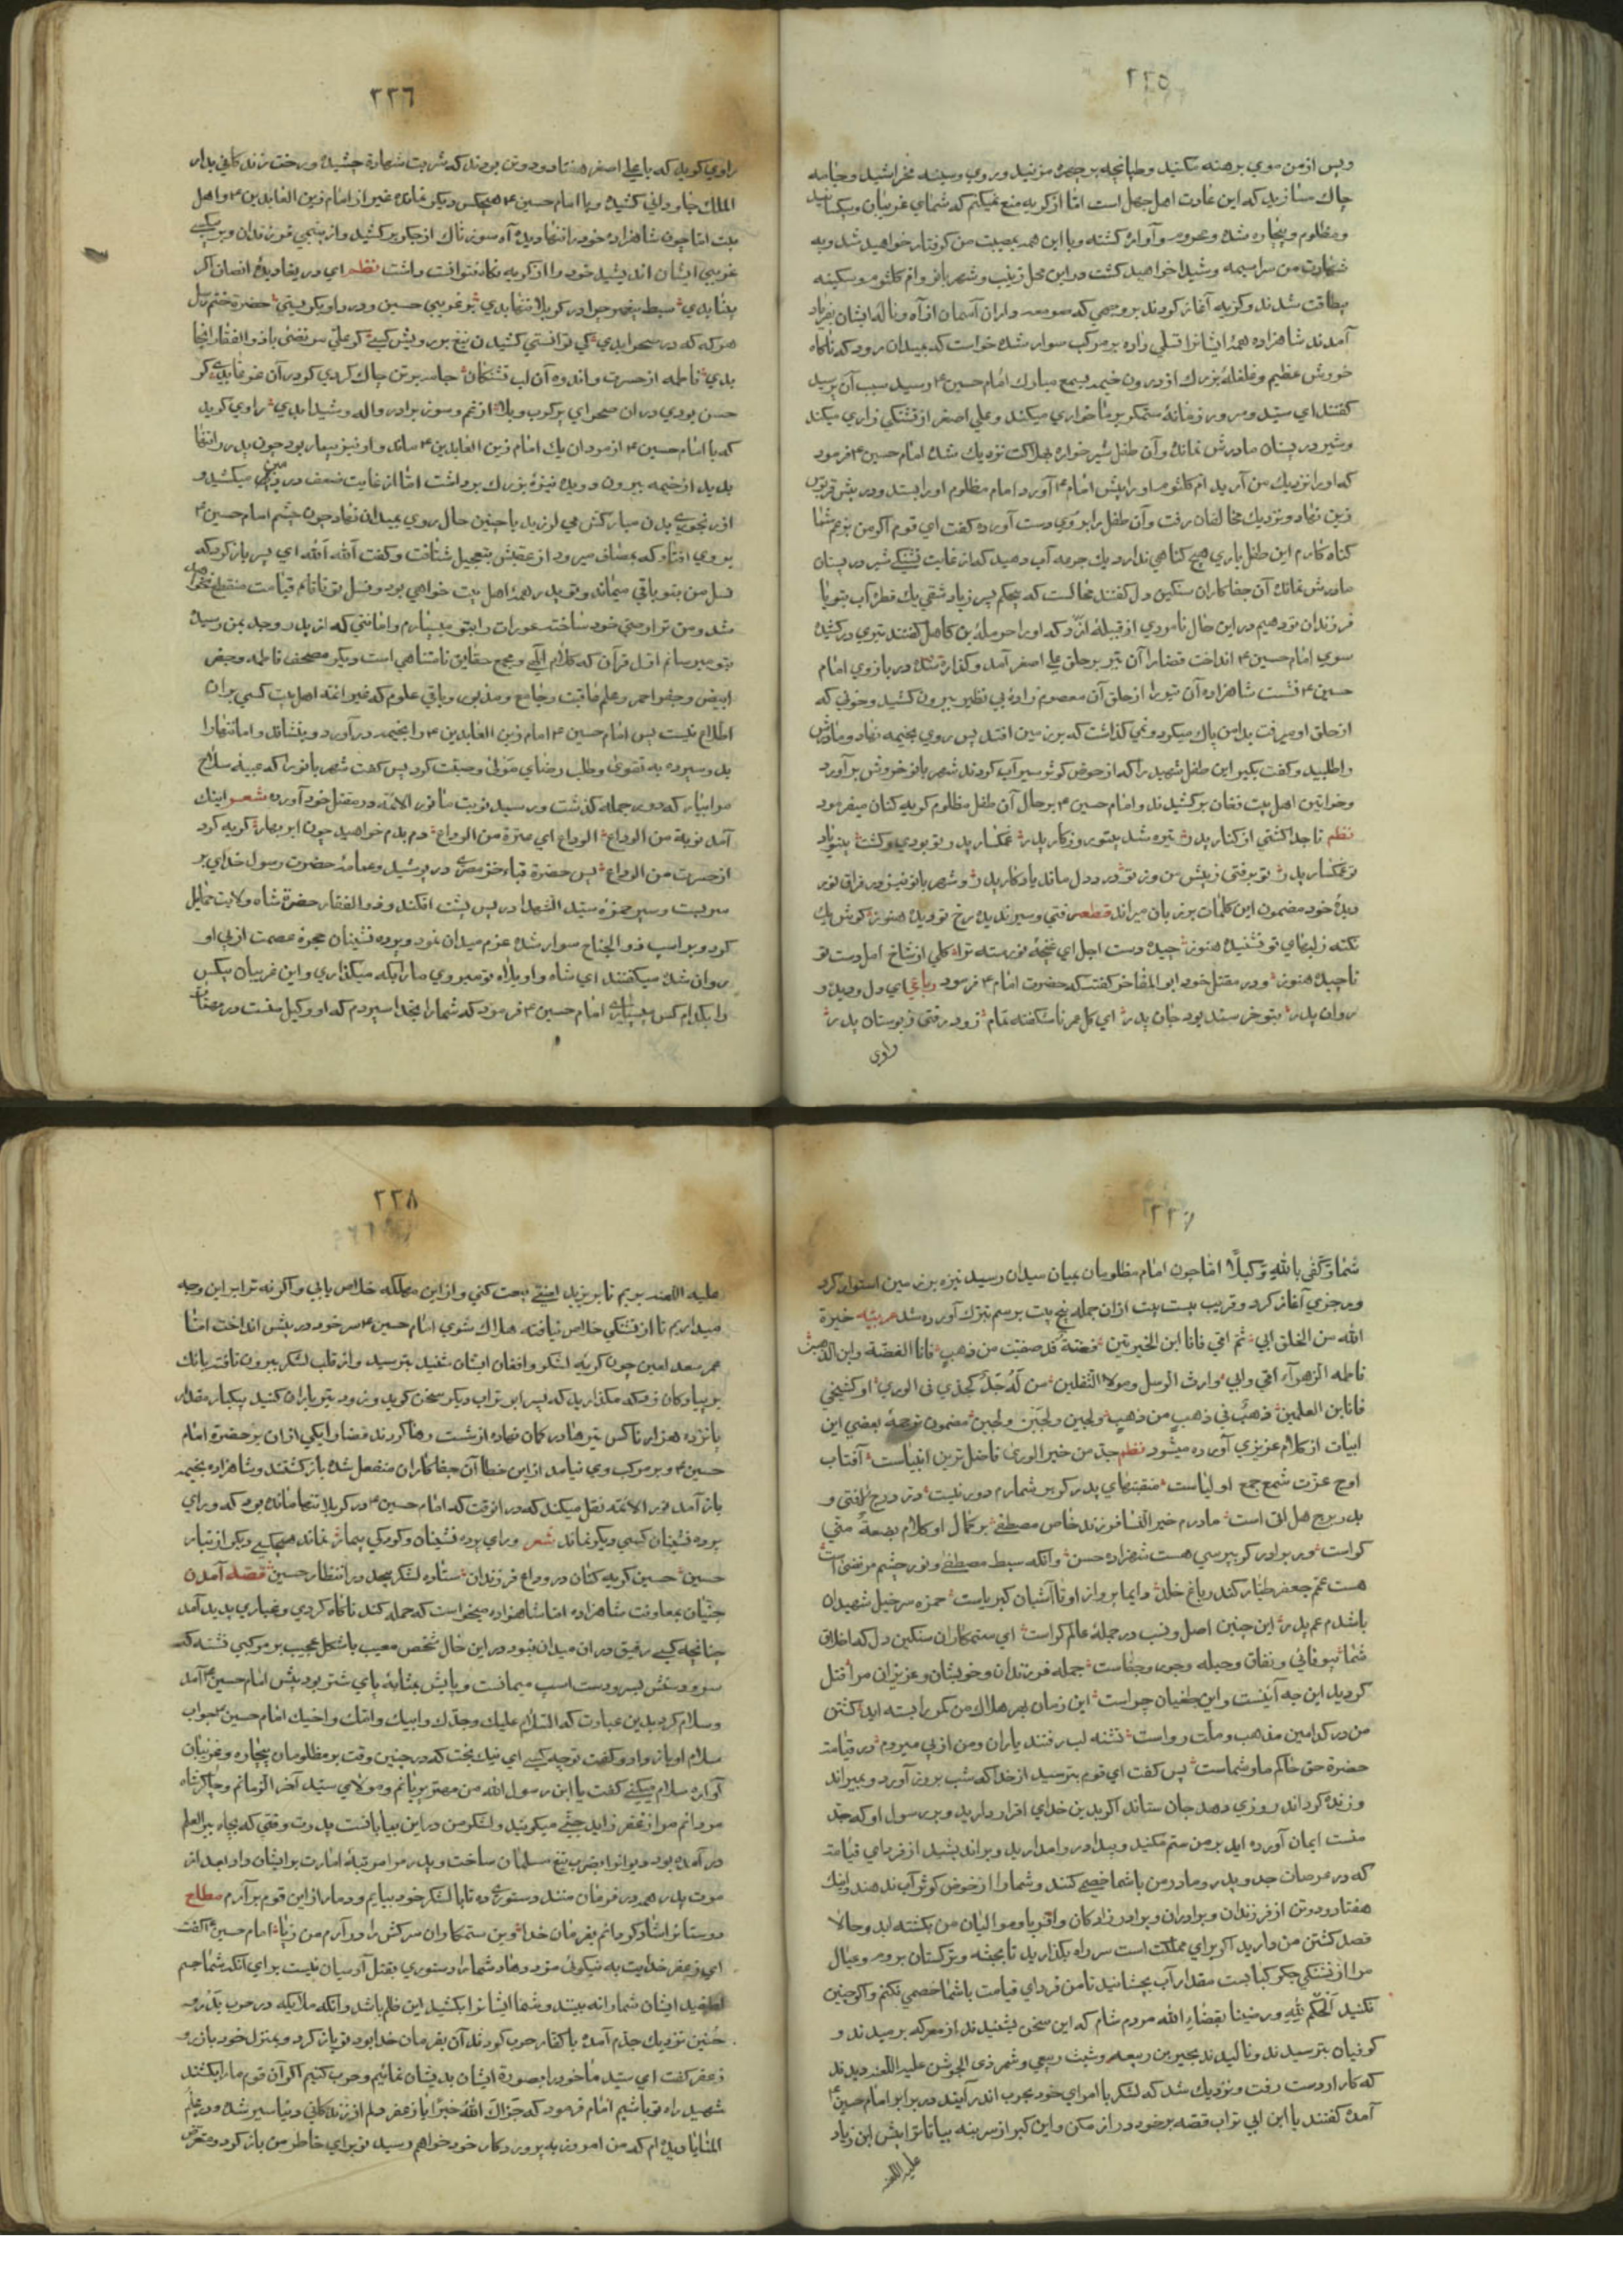 ٢٢٥
وپس از من موي برهنه مكنيد وطپانچه بر چهره مزنيد وروي وسينه مخراشيد وجامه
چاك مسازيد كه اين عادت اهل جهل است امّا از كريه منع نميكنم كه شماي غريبان وبيكسانيد
ومظلوم وبيچاره شده ومحروم وآواره كشته وبا اين همه بمصيبت من كرفتار خواهيد شد وبه
شهادت من سراسيمه وشيدا خواهيد كشت در اين محل زينب وشهر بانو وام كلثوم وسكينه
بيطاقت شدند وكريه آغاز كردند بروجهي كه صومعه داران آسمان از آه وناله ايشان بفرياد
آمدند شاهزاده همه ايشانرا تسلي داده بر مركب سوار شده خواست كه بميدان رود كه ناكاه
خروش عظيم وغلغله بزرك از درون خيمه بسمع مبارك امام حسين ۴ رسيد سبب آن پرسيد
كفتند اي سيّد وسرور زمانهٔ ستمكر بر ما خواري ميكند وعلي اصغر از تشنكي زاري ميكند
وشير در پستان مادرش نمانده وآن طفل شير خواره بهلاكت نزديك شده امام حسين ۴ فرمود
كه او را نزديك من آريد ام كلثوم او را پيش امام ۴ آورد امام مظلوم او را بستد ودر پيش قربوس
زين نهاد ونزديك مخالفان رفت وآن طفل را بر وي دست آورده كفت اي قوم اكر من بزعم شما
كناه كارم اين طفل باري هيچ كناهي ندارد يك جرعه آب دهيد كه از غايت تشنكي شير در پستان
مادرش نمانده آن جفا كاران سنكين دل كفتند محالست كه بيحكم پسر زياد شقي يك قطره آب بتو يا
فرزندان تو دهيم در اين حال نامردي از قبيله ازد كه او را حرمله بن كاهل كفتند تيري در كشيده
سوي امام حسين ۴ انداخت قضارا آن تير بر حلق علي اصغر آمد وكذاره شده در بازوي امام
حسين ۴ نشست شاهزاده آن تير را از حلق آن معصوم زاده بي نظير بيرون كشيد وخوني كه
از حلق او ميرفت بدامن پاك ميكرد ونمي كذاشت كه بر زمين افتد پس روي بخيمه نهاد ومادرش
را طلبيد وكفت بكير اين طفل شهيد را كه از حوض كوثر سيرآب كردند شهر بانو خروش بر آورد
وخواتين اهل بيت فغان بركشيدند وامام حسين ۴ بر حال آن طفل مظلوم كريه كنان ميفرمود
نظم تا جدا كشتي از كنار پدر تيره شد بيتو روزكار پدر غمكسار پدر تو بودي وكشت بيتو ياد
تو غمكسار پدر تو برفتي ز پيش من وز تو در دل ماند يادكار پدر وشهر بانو نيز در فراق نور
ديدهٔ خود مضمون اين كلمات بر زبان ميراند قطعه رفتي وسير نديده رخ تو ديده هنوز كوش يك
نكته ز لبهاي تو نشنيده هنوز چيده دست اجل اي غنچهٔ نورسته ترا كلي از شاخ امل دست تو
ناچيده هنوز ودر مقتل خود ابو المفاخر كفتست كه حضرت امام ۴ فرمود رباعي اي دل وديده و
روان پدر بتو خرسند بود جان پدر اي كل عمر ناشكفته تمام زود رفتي ز بوستان پدر
راوي
٢٢٦
راوي كويد كه با علي اصغر هفتاد ودو تن بودند كه شربت شهادة چشيده ورخت زندكاني بدار
الملك جاوداني كشيده وبا امام حسين ۴ هيچكس ديكر نمانده غير از امام زين العابدين ۴ واهل
بيت امّا چون شاهزاده خود را تنها ديده آه سوزناك از جكر بركشيد واز يتيمي فرزندان وبيكسي
غريبي ايشان انديشيد خود را از كريه نكاه نتوانست داشت نظم اي دريغا ديدهٔ انصاف اكر
بينا بدي سبط پيغمبر چرا در كربلا تنها بدي بر غريبي حسين ودرد او بكريستي حضرة ختم رسل
هر كه كه در صحرا بدي كي توانستي كشيدن تيغ بر رويش كسي كر علي مرتضى با ذو الفقار آنجا
بدي فاطمه از حسرت واندوه آن لب تشنكان جامه بر تن چاك كردي كر در آن غوغا بدي كر
حسن بودي در آن صحراي پر كرب وبلا از غم وسوز برادر واله وشيدا بدي راوي كويد
كه با امام حسين ۴ از مردان يك امام زين العابدين ۴ مانده واو نيز بيمار بود چون پدر را تنها
بديد از خيمه بيرون دويده نيزهٔ بزرك برداشت امّا از غايت ضعف در زمين ميكشيد و
از رنجوري بدن مباركش مي لرزيد با چنين حال روي بميدان نهاد چون چشم امام حسين ۴
بر وي افتاد كه بمصاف ميرود از عقبش بتعجيل شتافت وكفت الله الله اي پسر باز كرد كه
نسل من بتو باقي ميماند وتو پدر همهٔ اهل بيت خواهي بود ونسل تو تا قائم قيامت منقطع نخواهد
شد ومن ترا وصي خود ساخته عورات را بتو ميسپارم وامانتي كه از پدر وجد بمن رسيده
بتو ميرسانم اوّل قرآن كه كلام الهي ومجمع حقايق نامتناهي است ديكر مصحف فاطمه وجفر
ابيض وجفر احمر وعلم عاقبت وجامع ومذبور وباقي علوم كه غير ائمه اهل بيت كسي بر آن
اطلاع نيست پس امام حسين ۴ امام زين العابدين ۴ را بخيمه در آورد وبنشاند وامانتها را
بدو سپرده به تقوى وطلب رضاي مولى وصيت كرد پس كفت شهر بانو را كه عيبهٔ سلاح
مرا بيار كه دور جمله كذشت ورسيد نوبت ما نور الائمّه در مقتل خود آورده شعر اينك
آمد نوبة من الوداع الوداع اي عترة من الوداع دم بدم خواهيد چون ابر بهار كريه كرد
از حسرت من الوداع پس حضرة قباء خز مصري در پوشيد وعمامهٔ حضرت رسول خداي بر
سر بست وسپر حمزه سيّد الشهدا در پس پشت افكند وذو الفقار حضرة شاه ولايت حمايل
كرد وبر اسب ذو الجناح سوار شده عزم ميدان نمود وپرده نشينان حجرهٔ عصمت از پي او
روان شده ميكفتند اي شاه واويلاه تو ميروي ما را بكه ميكذاري واين غريبان بيكس
را بكدام كس ميسپاري امام حسين ۴ فرمود كه شما را بخدا سپردم كه او وكيل منست در مهمات
٢٢٧
شما وَكَفٰى بِاللهِ وَكِيلًا امّا چون امام مظلومان بميان ميدان رسيد نيزه بر زمين استوار كرد
ورجزي آغاز كرد وقريب بيست بيت از ان جمله پنج بيت برسم تبرك آورده شد عربيّه خيرة
الله من الخلق ابي ثم امّي فانا ابن الخيرتين فضّة قد صفيت من ذهب فانا الفضّة وابن الذهبين
فاطمه الزهرآء امّي وابي وارث الرسل ومولا الثقلين من لَهُ جَدٌّ كجدّي فى الورى او كشيخي
فانا بن العلمين ذهبٌ في ذهبٍ من ذهبٍ ولجين ولجَيْن ولجين مضمون ترجمهٔ بعضي اين
ابيات از كلام عزيزي آورده ميشود نظم جدّ من خير الورى فاضل ترين انبياست آفتاب
اوج عزّت شمع جمع اولياست منقبتهاي پدر كر بر شمارم دور نيست درّ درج لافتى و
بدر برج هل اتى است مادرم خير النّسا فرزند خاص مصطفى بر كمال او كلام بضعةٌ منّي
كواست ور برادر كر بپرسي هست شهزاده حسن وآنكه سبط مصطفى ونور چشم مرتضى است
هست عمّ جعفر طيّار كندر باغ خلد دايما پرواز او تا آشيان كبرياست حمزه سر خيل شهيدان
باشدم عم پدر اين چنين اصل ونسب در جملهٔ عالم كراست اي ستمكاران سنكين دل كه اخلاق
شما بيوفائي ونفاق وحيله وجور وجفاست جمله فرزندان وخويشان وعزيزان مرا قتل
كرديد اين چه آئينست واين طغيان چراست اين زمان بهر هلاك من كمر را بسته ايد كشتن
من در كدامين مذهب وملّت رواست تشنه لب رفتند ياران ومن از پي ميروم در قيامت
حضرة حق حاكم ما وشماست پس كفت اي قوم بترسيد از خدا كه شب بروز آورد وبميراند
وزنده كرداند روزي دهد جان ستاند اكر بدين خداي اقرار داريد وبر رسول او كه جدّ
منست ايمان آورده ايد بر من ستم مكنيد وبيداد روا مداريد وبر انديشيد از فرداي قيامت
كه در عرصات جد وپدر ومادر من با شما خصمي كنند وشما را از حوض كوثر آب ندهند واينك
هفتاد ودو تن از فرزندان وبرادران وبرادر زادكان واقربا ومواليان من بكشته ايد وحالا
قصد كشتن من داريد اكر براي مملكت است سر راه بكذاريد تا بحبشه وتركستان بروم وعيال
مرا از تشنكي جكر كبابست مقدار آب بچشانيد تا من فرداي قيامت با شما خصمي نكنم واكر چنين
نكنيد الْحُكْم لِلّهِ ورضينا بقضاءِ الله مردم شام كه اين سخن بشنيدند از معركه برميدند و
كوفيان بترسيدند وناليدند بحير بن ربيعه وشبث ربعي وشمر ذى الجوشن عليه اللعنه ديدند
كه كار از دست رفت ونزديك شد كه لشكر با امراي خود بحرب اندر آيند در برابر امام حسين ۴
آمده كفتند يا ابن ابي تراب قصه بر خود دراز مكن واين كبر از سر بنه بيا تا ترا پيش ابن زياد
عليه اللعنه
٢٢٨
عليه اللعنه بريم تا بر يزيد لعين بيعت كني واز اين مهلكه خلاص يابي واكر نه ترا بر اين وجه
ميداريم تا از تشنكي خلاص نيافته هلاك شوي امام حسين ۴ سر خود در پيش انداخت امّا
عمر سعد لعين چون كريه لشكر وافغان ايشان شنيد بترسيد واز قلب لشكر بيرون تاخته بانك
بر پيادكان زد كه مكذاريد كه پسر ابو تراب ديكر سخن كويد وزود تير باران كنيد بيكبار مقدار
پانزده هزار ناكس تيرها در كمان نهاده از شست رها كردند قضارا يكي از ان بر حضرة امام
حسين ۴ وبر مركب وي نيامد از اين خطا آن جفاكاران منفعل شده باز كشتند وشاهزاده بخيمه
باز آمد نور الائمّه نقل ميكند كه در آنوقت كه امام حسين ۴ در كربلا تنها مانده بود كه وراي
پرده نشينان كسي ديكر نماند شعر وراي پرده نشينان وكودكي بيمار نماند هيچ كسي ديكر از تبار
حسين حسين كريه كنان در وداع فرزندان ستاده لشكر بيحد در انتظار حسين قصه آمدن
جنّيان بمعاونت شاهزاده امّا شاهزاده ميخواست كه حمله كند ناكاه كردي وغباري پديد آمد
چنانچه كسي رفيق در ان ميدان نبود در اين حال شخص معيب باشكل عجيب بر مركبي نشسته كه
سر ودستش بسر ودست اسب ميمانست وپايش بمثابه پاي شتر بود پيش امام حسين ۴ آمد
وسلام كرد بدين عبارت كه السّلام عليك وجدّك وابيك وامّك واخيك امام حسين ۴ جواب
سلام او باز داد وكفت تو چه كسي اي نيك بخت كه در چنين وقت بر مظلومان بيچاره وغريبان
آواره سلام ميكني كفت يا ابن رسول الله من مهتر پريانم ومولاي سيّد آخر الزمانم وچاكر شاه
مردانم مرا زعفر زاهد جنّي ميكويند ولشكر من در اين بيابانست پدرت وقتي كه بچاه بير العلم
در آمده بود وديوانرا بضرب تيغ مسلمان ساخت وپدر مرا مرتبهٔ امارت بر ايشان داد وبعد از
موت پدر همه در فرمان منند دستوري ده تا با لشكر خود بيايم ودمار از اين قوم بر آرم مطلع
دوستانرا شاد كردانم بفرمان خدا وين ستمكاران سركش را در آرم من ز پا امام حسين ۴ كفت
اي زعفر خدايت به نيكوئي مزد دهاد شما را دستوري بقتل آدميان نيست براي آنكه شما جسم
لطيفيد ايشان شما را نه بينند وشما ايشانرا بكشيد اين ظلم باشد وآنكه ملايكه در حرب بَدْر و
حُنين نزديك جدّم آمده با كفّار حرب كردند آن بفرمان خدا بود تو باز كرد وبمنزل خود باز رو
زعفر كفت اي سيّد ما خود را بصورة ايشان بديشان نمائيم وحرب كنيم اكر آن قوم ما را بكشند
شهيد راه تو باشيم امام فرمود كه جزاك اللهُ خيرًا يا زعفر دلم از زندكاني دنيا سير شده ودر علم
المنايا ديده ام كه من امروز به پروردكار خود خواهم رسيد تو براي خاطر من باز كرد ومتعرّض